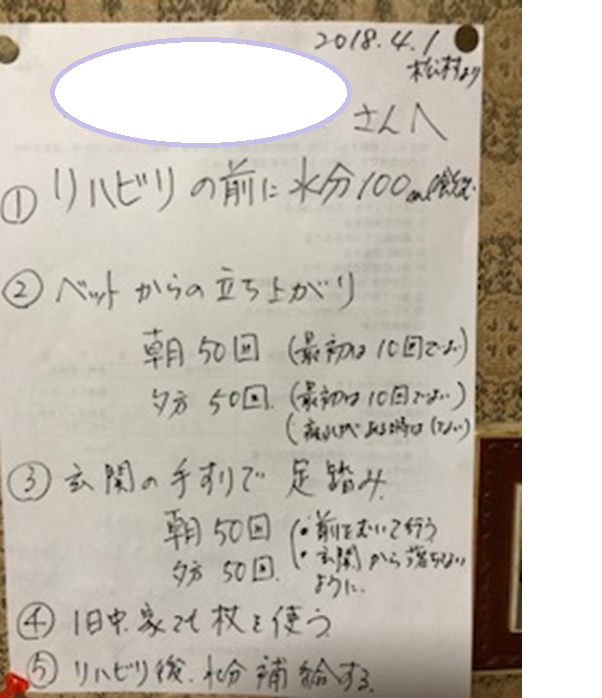 2018.4.1
松村より
さんへ
① リハビリの前に水分100ml飲む
② ベットからの立ち上がり
朝 50回 (最初は10回でよい)
夕方 50回. (最初は10回でよい)
ある時はしない)
③ 玄関の手すりで 足踏み
朝 50回 (・前をむいて行う
夕方 50回. ・玄関から落ちない
ように.
④ 1日中.家でも杖を使う
⑤ リハビリ後.水分補給する